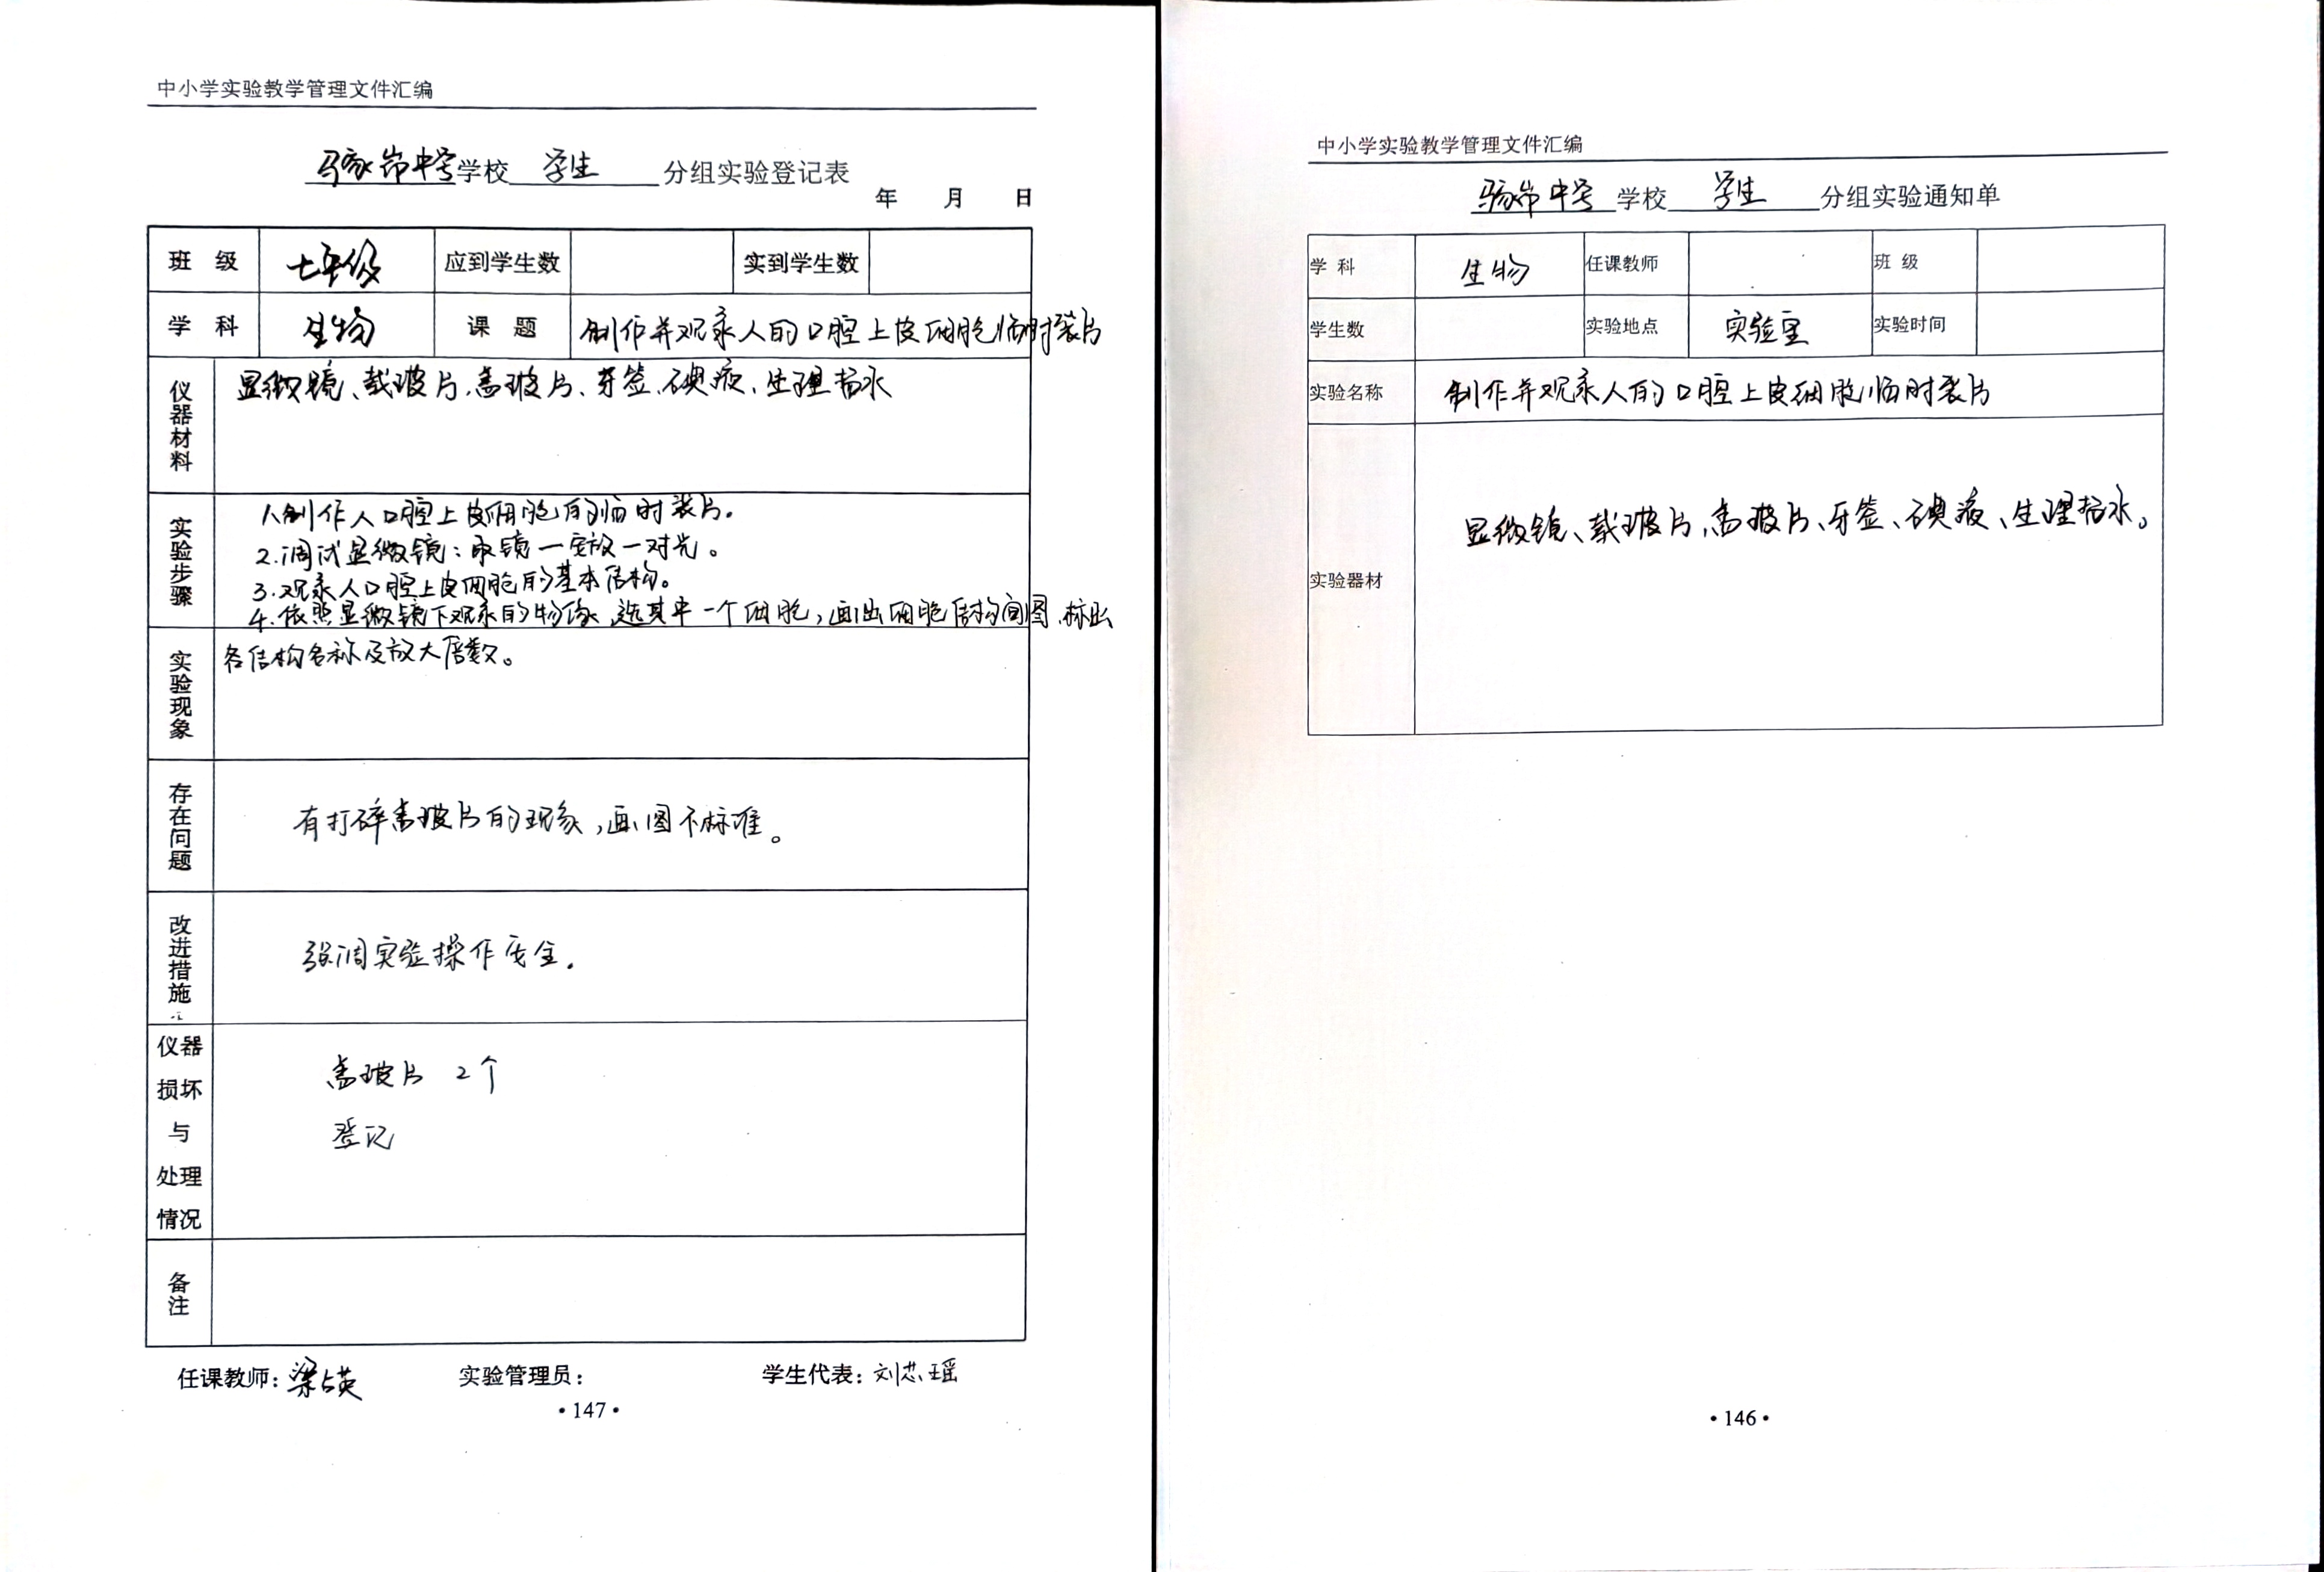 中小学实验教学管理文件汇编
马家岇中学学校 学生 分组实验登记表
年 月 日
班 级 七年级 应到学生数 实到学生数
学 科 生物 课 题 制作并观察人的口腔上皮细胞临时装片
仪器材料 显微镜、载玻片、盖玻片、牙签、碘液、生理盐水
实验步骤
1.制作人口腔上皮细胞的临时装片。
2.调试显微镜:取镜一安放一对光。
3.观察人口腔上皮细胞的基本结构。
4.依照显微镜下观察的物像,选其中一个细胞,画出细胞结构简图,标出
实验现象 各结构名称及放大倍数。
存在问题 有打碎盖玻片的现象,画图不标准。
改进措施 强调实验操作安全.
仪器损坏与处理情况
盖玻片 2个
登记
备注
任课教师:梁占英 实验管理员: 学生代表:刘芯瑶
•147•
中小学实验教学管理文件汇编
马家岇中学 学校 学生 分组实验通知单
学 科 生物 任课教师 班 级
学生数 实验地点 实验室 实验时间
实验名称 制作并观察人的口腔上皮细胞临时装片
实验器材 显微镜、载玻片、盖玻片、牙签、碘液、生理盐水。
•146•